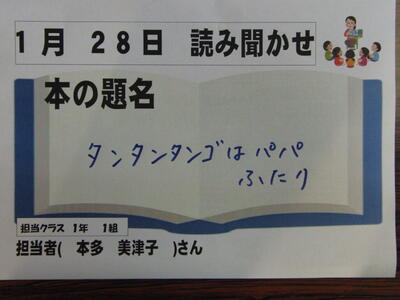 1月 28日 読み聞かせ
本の題名
タンタンタンゴはパパ
ふたり
担当クラス 1年 1組
担当者( 本多 美津子 )さん